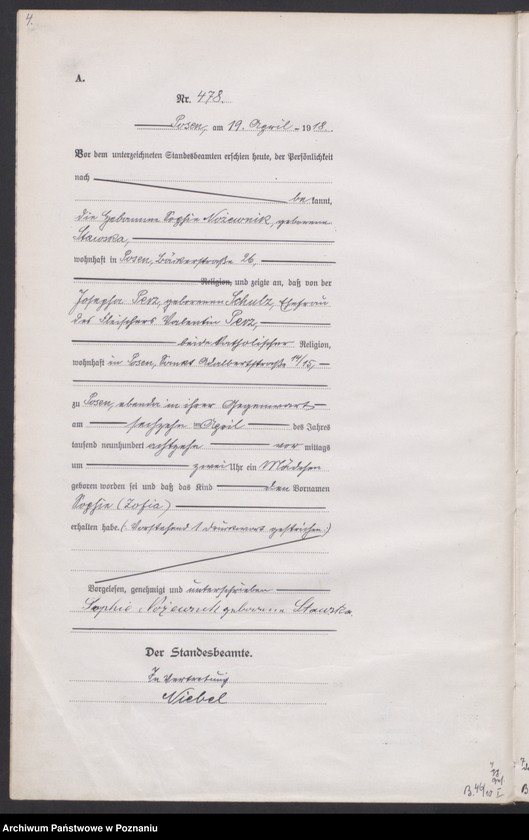 4.
A.
Nr. 478.
Posen, am 19. April 1918.
Vor dem unterzeichneten Standesbeamten erschien heute, der Persönlichkeit
nach
bekannt,
die Hebamme Sophie Nożewnik, geborene
Stawska,
wohnhaft in Posen, Bäckerstraße 26,
Religion, und zeigte an, daß von der
Josepha Perz, geborenen Schulz, Ehefrau
des Fleischers Valentin Perz,
beide katholischer Religion,
wohnhaft in Posen, Sankt Adalbertstraße 14/15,
zu Posen, ebenda in ihrer Gegenwart
am sechzehn April des Jahres
tausend neunhundert achtzehn vor mittags
um zwei Uhr ein Mädchen
geboren worden sei und daß das Kind den Vornamen
Sophie (Zofia)
erhalten habe. (Vorstehend 1 Druckwort gestrichen.)
Vorgelesen, genehmigt und unterschrieben
Sophie Nożewnik geborene Stawska
Der Standesbeamte.
In Vertretung
Niebel
B.44/18 I
Archiwum Państwowe w Poznaniu